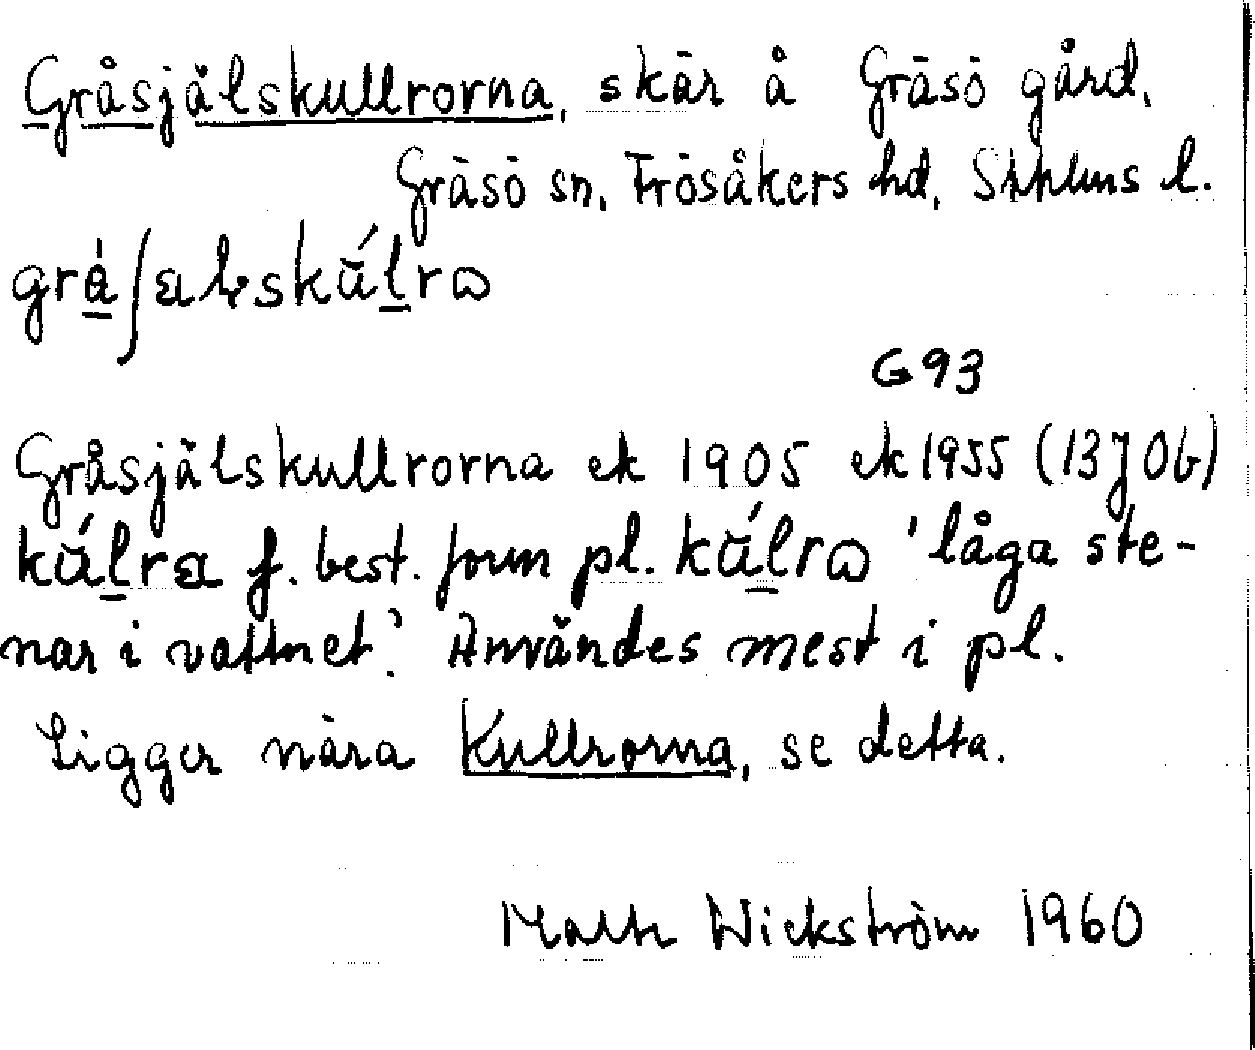 Gråsjälskullrorna, skär å Gräsö gård,
Gräsö sn, Frösåkers hd, Sthlms l.
G93
Gråsjälskullrorna ek 1905 ek 1955 (13J0b)
f. best. form pl. 'låga ste-
nar i vattnet'. Användes mest i pl.
Ligger nära Kullrorna, se detta.
Wickström 1960